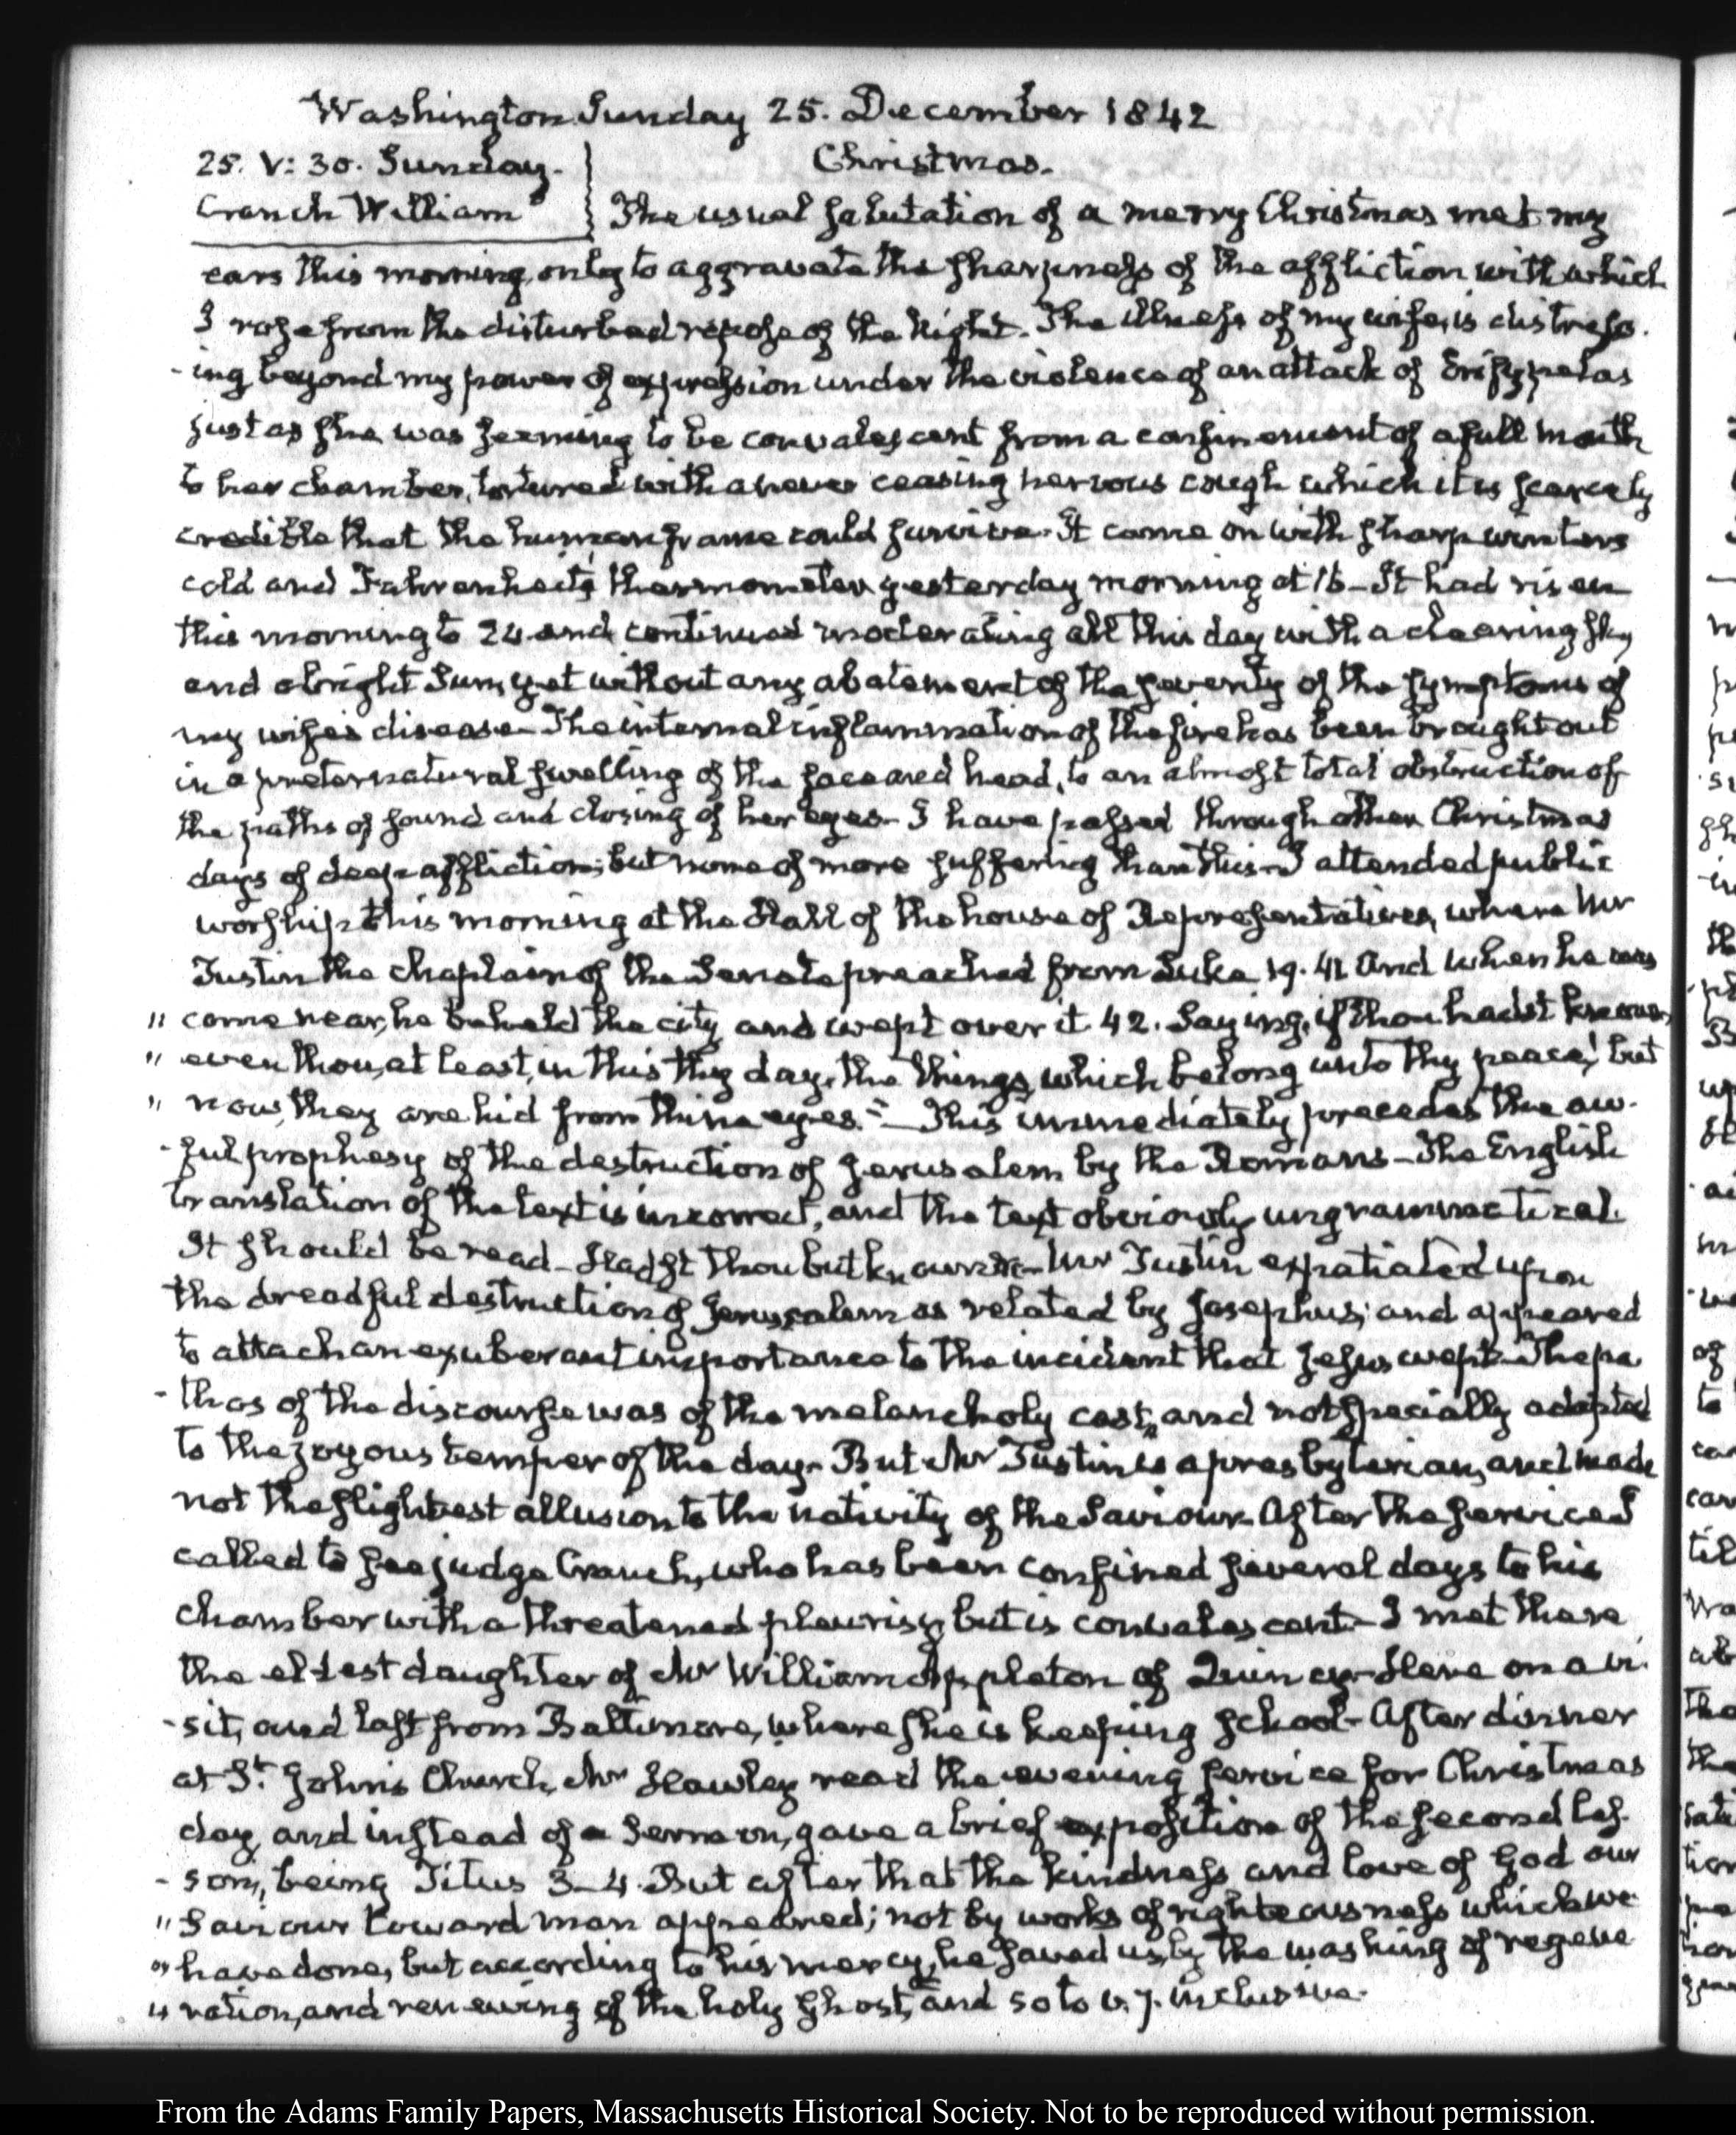 Washington Sunday 25. December 1842
25. V: 30. Sunday. Christmas.
Cranch William The usual salutation of a merry Christmas met my
ears this morning, only to aggravate the sharpness of the affliction with which
I rose from the disturbed repose of the Night. The illness of my wife, is distress-
-ing beyond my power of expression under the violence of an attack of Erisypelas
just as she was seeming to be convalescent from a confinement of a full month
to her chamber, tortured with a never ceasing nervous cough which it is scarcely
credible that the human frame could survive. It came on with sharp winters
cold and Fahrenheit's thermometer yesterday morning at 16 - It had risen
this morning to 24 and continued moderating all this day with a clearing sky
and a bright Sun, yet without any abatement of the severity of the symptoms of
my wife's disease - The internal inflammation of the fire has been brought out
in a preternatural swelling of the face and head, to an almost total obstruction of
the paths of sound and closing of her eyes - I have passed through other Christmas
days of deep affliction; but none of more suffering than this - I attended public
worship this morning at the Hall of the house of Representatives, where Mr
Tustin the chaplain of the Senate preached from Luke 19. 41 And when he was
" come near, he beheld the city and wept over it. 42. Saying, if thou hadst known,
" even thou, at least, in this thy day, the things which belong unto thy peace! but
" now, they are hid from thine eyes." - This immediately precedes the aw-
-ful prophesy of the destruction of Jerusalem by the Romans - The English
translation of the text is incorrect, and the text obviously ungrammatical
It should be read - Hadst thou but known &c - Mr Tustin expatiated upon
the dreadful destruction of Jerusalem as related by Josephus; and appeared
to attach an exuberant importance to the incident that Jesus wept - The pa-
-thos of the discourse was of the melancholy cast, and not specially adapted
to the joyous temper of the day. But Mr Tustin is a presbyterian, and made
not the slightest allusion to the nativity of the Saviour. After the service I
called to see judge Cranch, who has been confined several days to his
chamber with a threatened pleurisy, but is convalescent - I met there
the eldest daughter of Mr William Appleton of Quincy - Here on a vi-
-sit, and last from Baltimore, where she is keeping school - After dinner
at St. John's Church, Mr Hawley read the evening service for Christmas
day, and instead of a Sermon, gave a brief exposition of the second les-
-son, being Titus 3-4. But after that the kindness and love of God our
" Saviour toward man appeared; not by works of righteousness which we
" have done, but according to his mercy, he saved us, by the washing of regene
" ration, and renewing of the holy Ghost, and so to v. 7. inclusive.
From the Adams Family Papers, Massachusetts Historical Society. Not to be reproduced without permission.